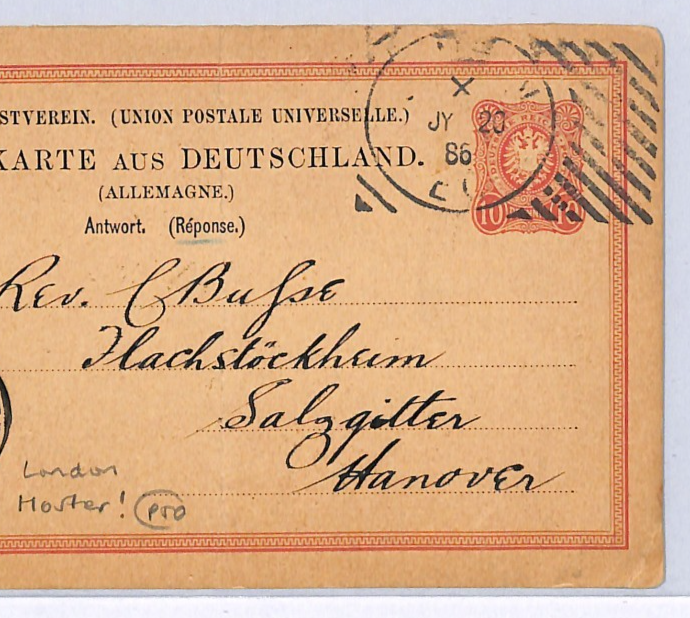 STVEREIN. (UNION POSTALE UNIVERSELLE.)
KARTE AUS DEUTSCHLAND.
(ALLEMAGNE.)
Antwort. (Réponse.)
X
JY 20
86
10 10
Rev. C Busse
Flachstöckheim
Salzgitter
Hanover
London
Hoster!